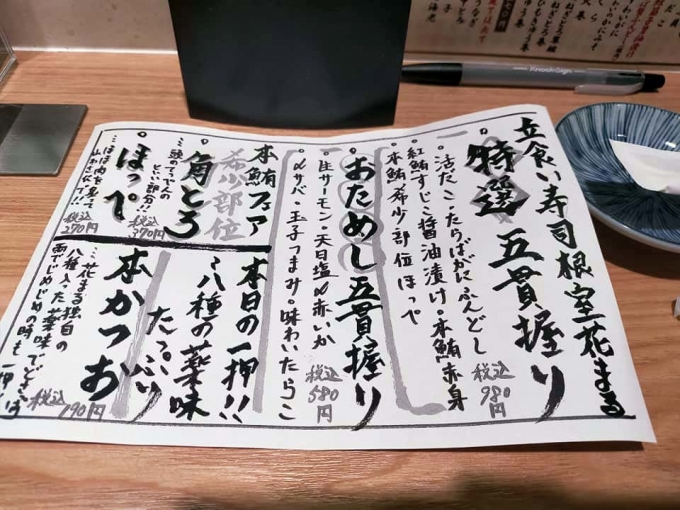 立食い寿司根室花まる
特選 五貫握り
一 活だこ・たらばがにふんどし
紅鮭すじこ醤油漬け。本鮪赤身
本鮪希少部位ほっぺ
税込980円
おためし五貫握り
一 生サーモン・天日塩〆赤いか
〆サバ・玉子つまみ。味わいたらこ
税込580円
本鮪フェア
希少部位
角とろ
…頭のてっぺんの
という部分!!
税込370円
ほっぺ
…ほほ肉を覚えて
税込270円
本日の一押!!
…八種の薬味
たっぷり
本かつお
…花まる独自の
八種入った薬味でどうぞ
雨でじめじめの時も一押し!
税込190円
KnockSign